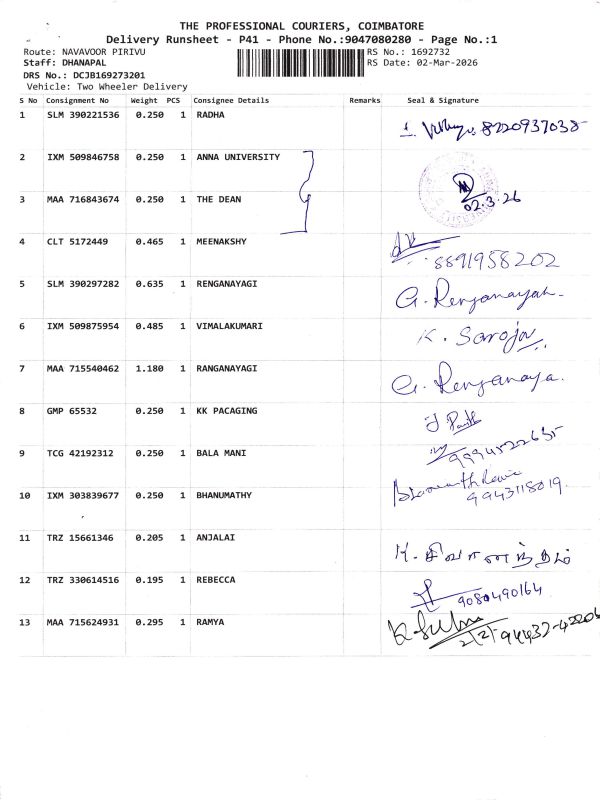 THE PROFESSIONAL COURIERS, COIMBATORE
Delivery Runsheet - P41 - Phone No.:9047080280 - Page No.:1
Route: NAVAVOOR PIRIVU
RS No.: 1692732
Staff: DHANAPAL
RS Date: 02-Mar-2026
DRS No.: DCJB169273201
Vehicle: Two Wheeler Delivery
S No Consignment No Weight PCS Consignee Details Remarks Seal & Signature
1 SLM 390221536 0.250 1 RADHA
8220937038
2 IXM 509846758 0.250 1 ANNA UNIVERSITY
3 MAA 716843674 0.250 1 THE DEAN
02.3.26
4 CLT 5172449 0.465 1 MEENAKSHY
8891958202
5 SLM 390297282 0.635 1 RENGANAYAGI
G. Renganayah
6 IXM 509875954 0.485 1 VIMALAKUMARI
K. Saroja
7 MAA 715540462 1.180 1 RANGANAYAGI
G. Renganaya.
8 GMP 65532 0.250 1 KK PACAGING
9 TCG 42192312 0.250 1 BALA MANI
9994522635
10 IXM 303839677 0.250 1 BHANUMATHY
9943118019
11 TRZ 15661346 0.205 1 ANJALAI
12 TRZ 330614516 0.195 1 REBECCA
9080490164
13 MAA 715624931 0.295 1 RAMYA
94437-42206